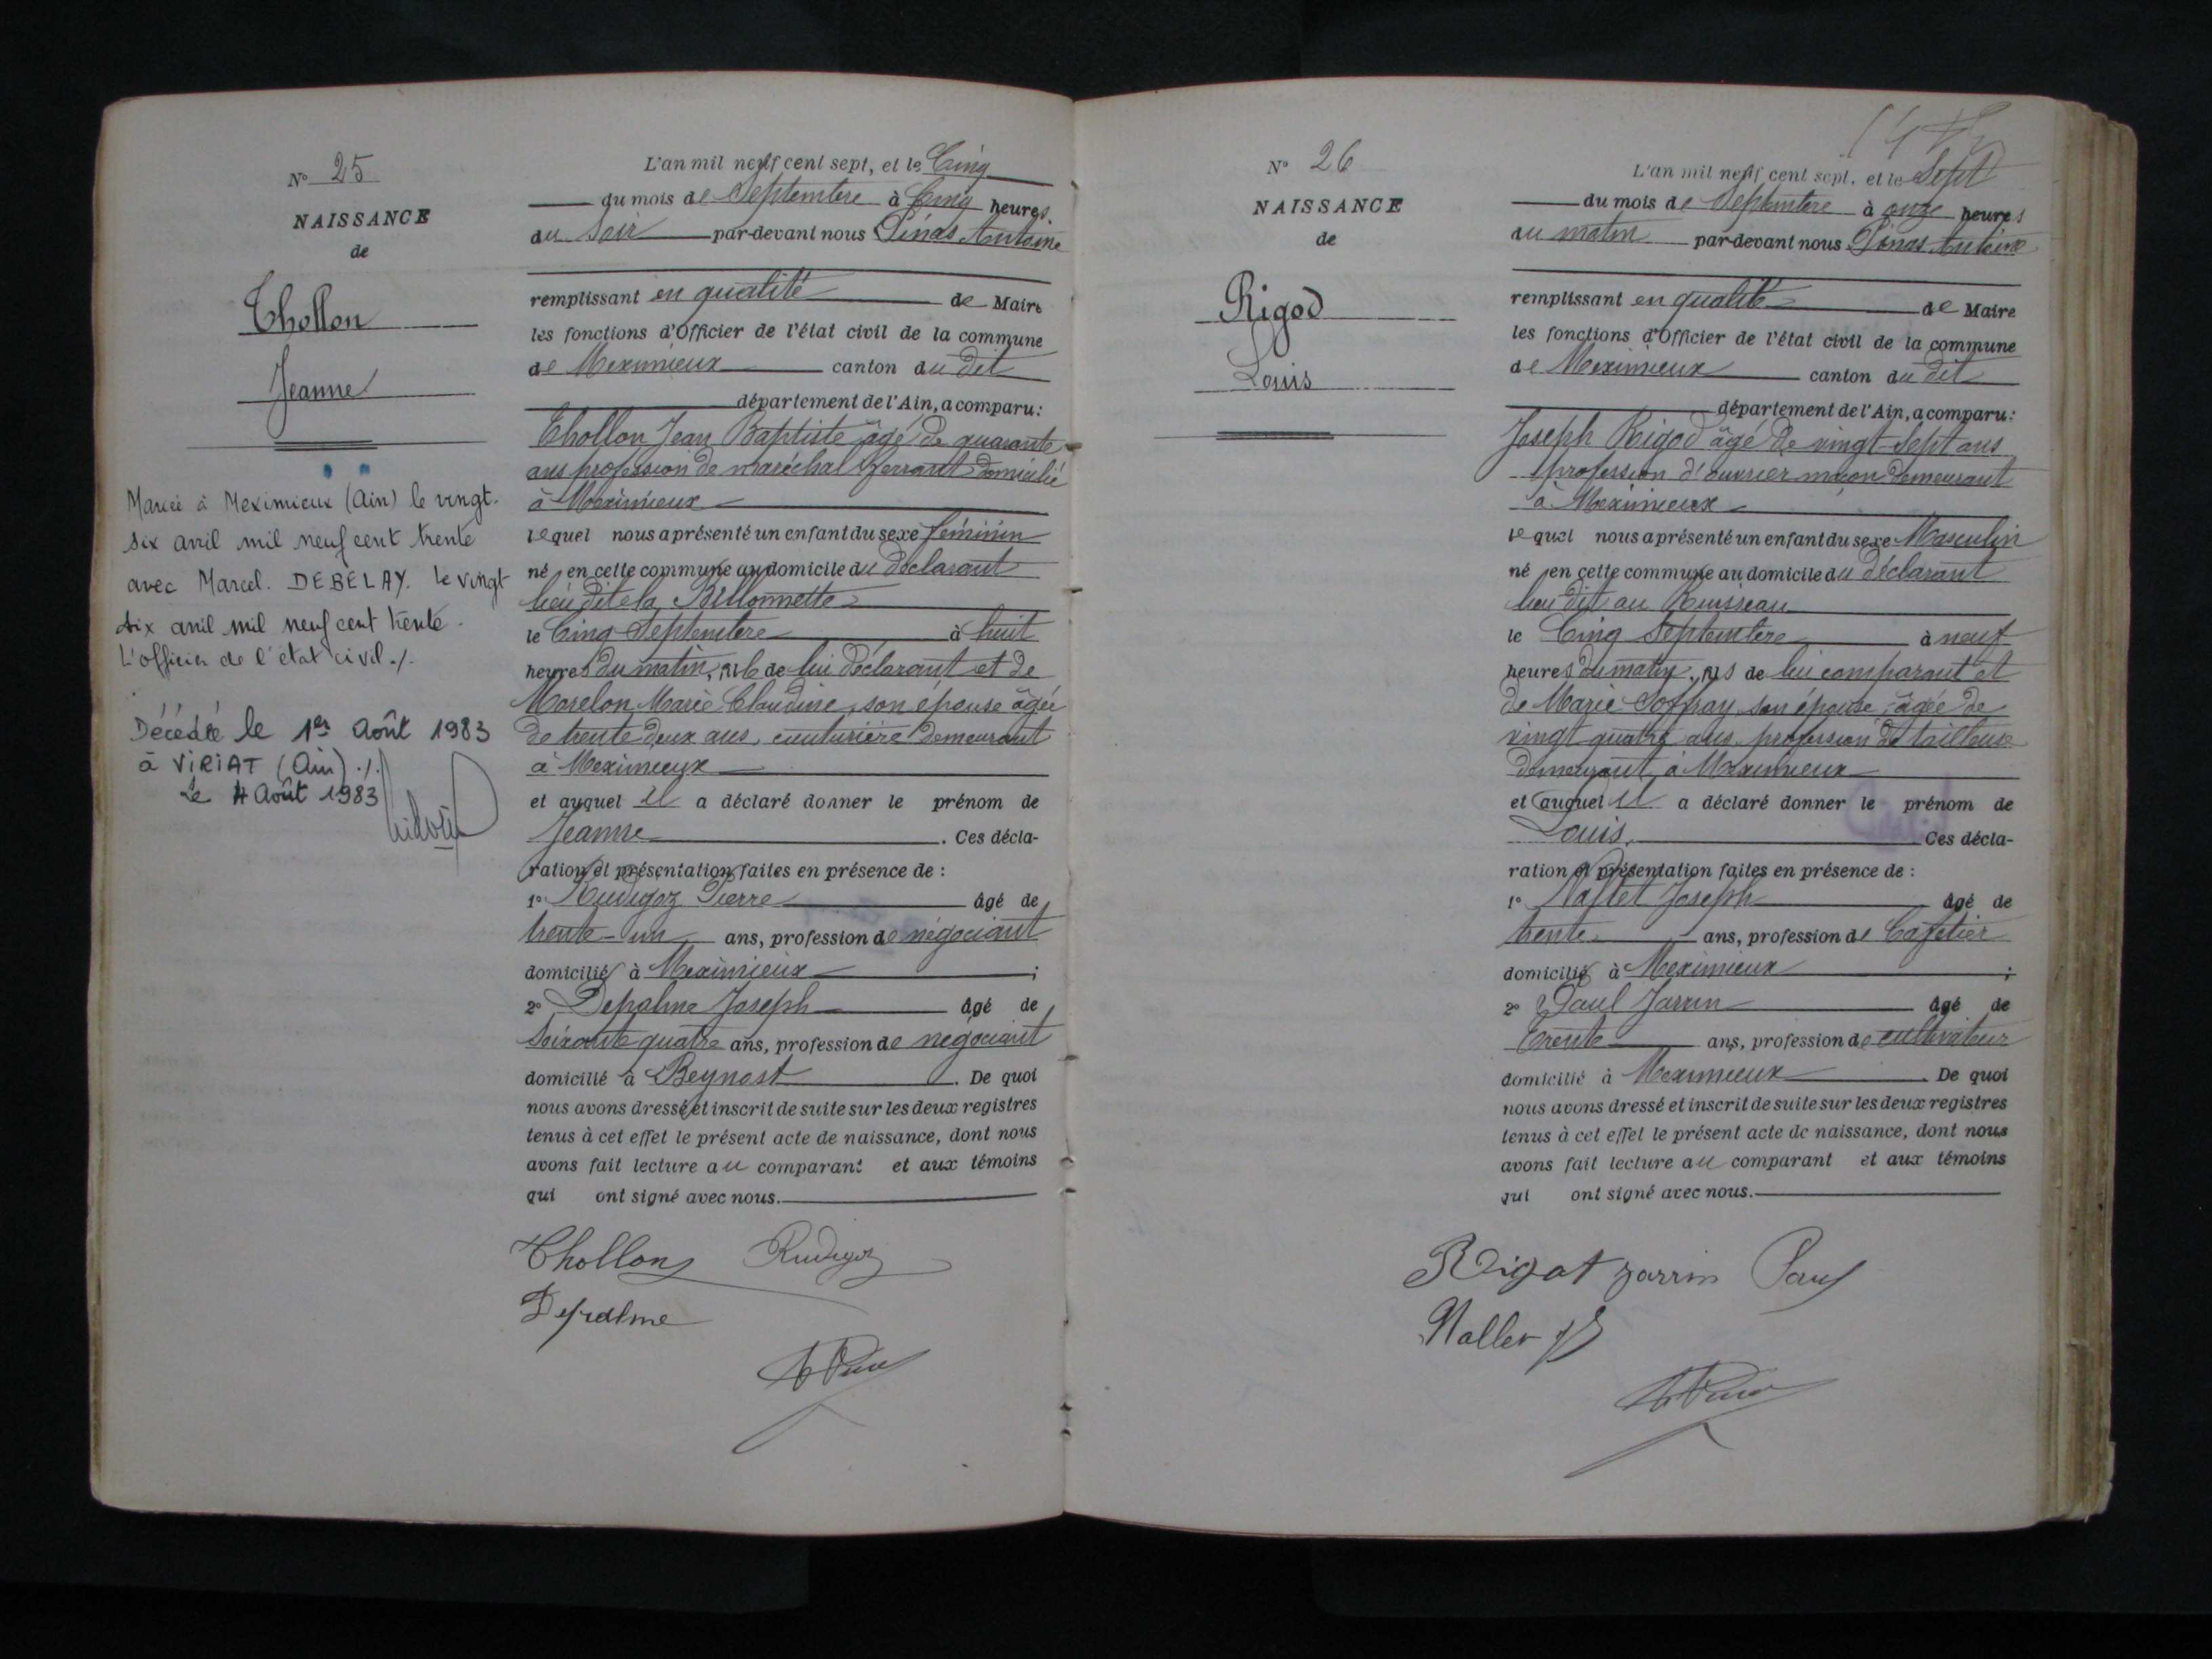 N° 25
NAISSANCE
de
Thollon
Jeanne
Mariée à Meximieux (Ain) le vingt-
six avril mil neuf cent trente
avec Marcel. DEBELAY. le vingt
six avril mil neuf cent trente.
L'officier de l'état civil ./.
Décédée le 1er Août 1983
à VIRIAT (Ain) ./.
Le 4 Août 1983
L'an mil neuf cent sept, et le Cinq
du mois de Septembre à Cinq heures
du soir par-devant nous Pinas Antoine
remplissant en qualité de Maire
les fonctions d'Officier de l'état civil de la commune
de Meximieux canton du dit
département de l'Ain, a comparu:
Thollon Jean Baptiste âgé de quarante
ans profession de maréchal ferrant domicilié
à Meximieux
lequel nous a présenté un enfant du sexe féminin
né en cette commune au domicile du déclarant
lieu dit la Billonnette
le Cinq Septembre à huit
heures du matin, fille de lui déclarant et de
Marie Claudine, son épouse âgée
de trente deux ans, couturière demeurant
à Meximieux
et auquel il a déclaré donner le prénom de
Jeanne. Ces décla-
ration et présentation faites en présence de :
1° Rudigoz Pierre âgé de
trente-un ans, profession de négociant
domicilié à Meximieux ;
2° Depalme Joseph âgé de
Soixante quatre ans, profession de négociant
domicilié à Beynost. De quoi
nous avons dressé et inscrit de suite sur les deux registres
tenus à cet effet le présent acte de naissance, dont nous
avons fait lecture au comparant et aux témoins
qui ont signé avec nous.
Thollon Rudigoz
Depalme
N° 26
NAISSANCE
de
Rigod
Louis
L'an mil neuf cent sept, et le Sept
du mois de Septembre à onze heures
du matin par-devant nous Pinas Antoine
remplissant en qualité de Maire
les fonctions d'Officier de l'état civil de la commune
de Meximieux canton du dit
département de l'Ain, a comparu:
Joseph Rigod âgé de vingt-sept ans
profession d'ouvrier maçon demeurant
à Meximieux
lequel nous a présenté un enfant du sexe Masculin
né en cette commune au domicile du déclarant
lieu dit au Ruisseau
le Cinq Septembre à neuf
heures du matin, fils de lui comparant et
de Marie Joffray son épouse, âgée de
vingt quatre ans profession de tailleuse
demeurant à Meximieux
et auquel il a déclaré donner le prénom de
Louis. Ces décla-
ration et présentation faites en présence de :
1° Nallet Joseph âgé de
trente ans, profession de Cafetier
domicilié à Meximieux ;
2° Paul Jarrin âgé de
trente ans, profession de cultivateur
domicilié à Meximieux. De quoi
nous avons dressé et inscrit de suite sur les deux registres
tenus à cet effet le présent acte de naissance, dont nous
avons fait lecture au comparant et aux témoins
qui ont signé avec nous.
Rigot jarrin Paul